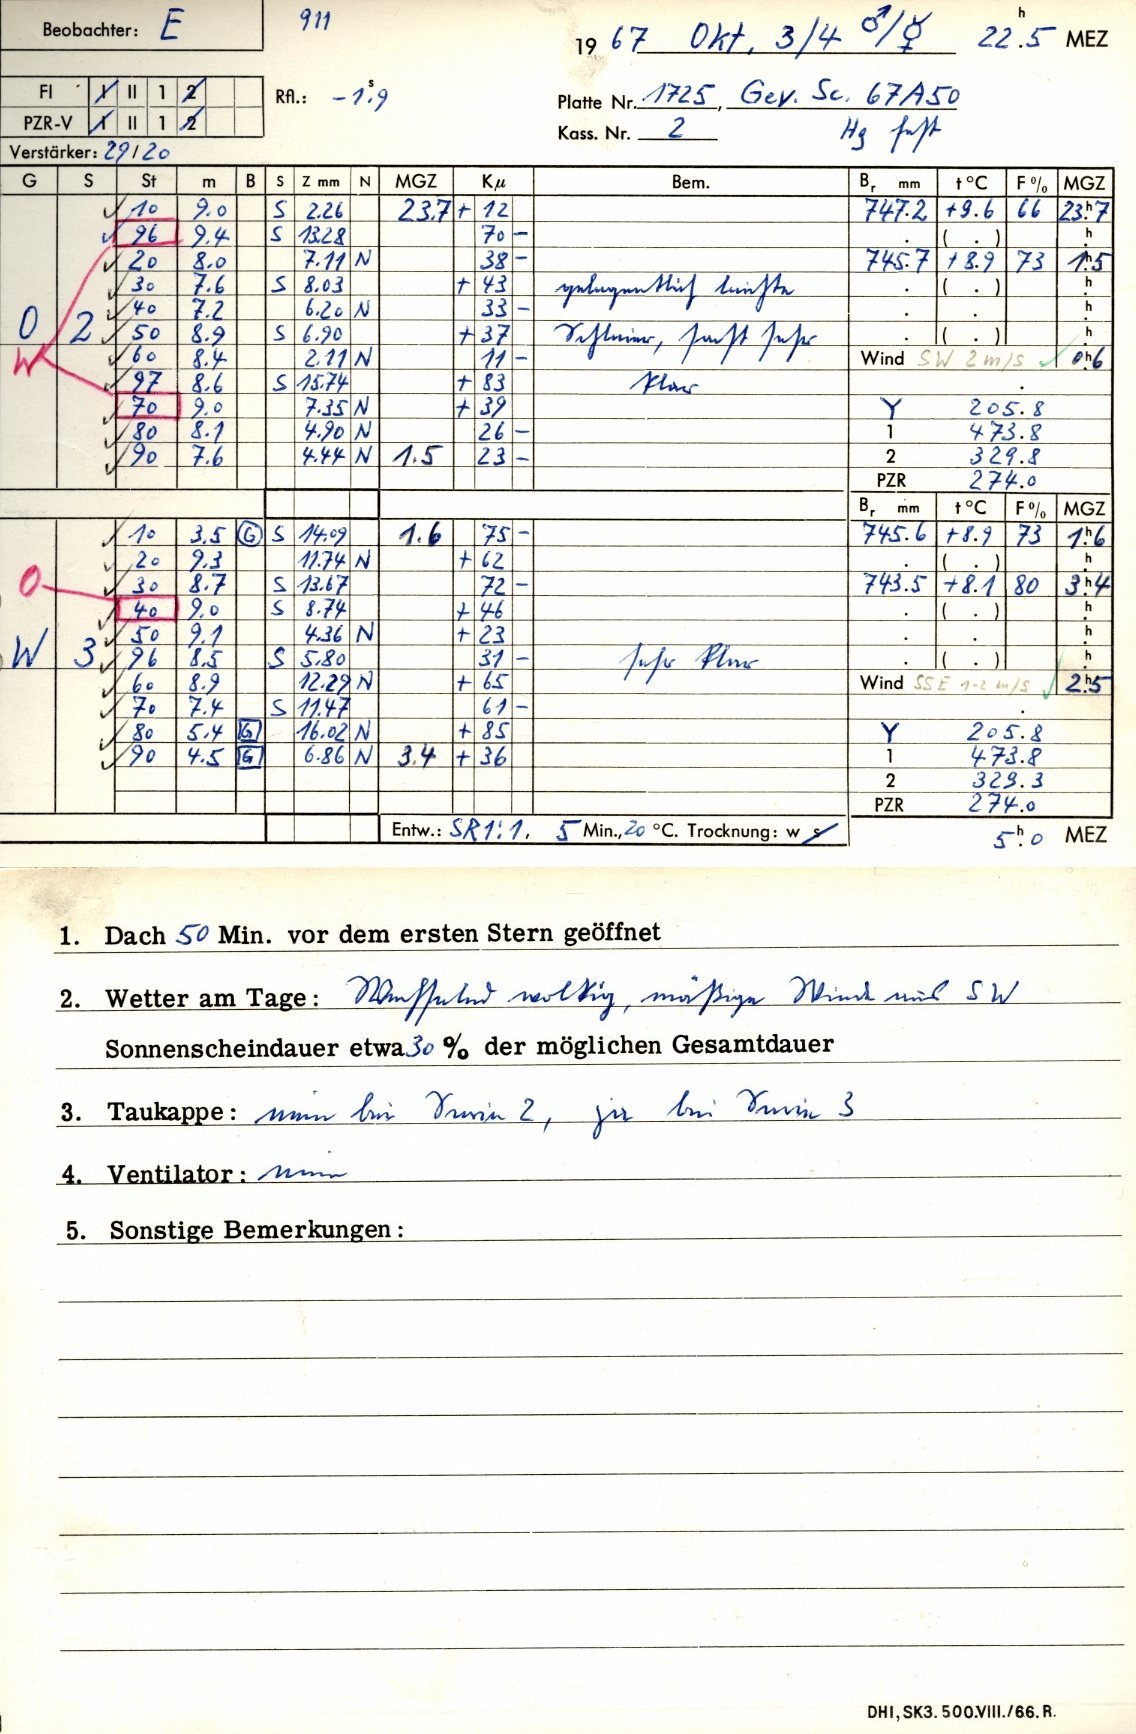 Beobachter: E 911 1967 Okt, 3/4 ♂/☿ 22.5 h MEZ
FI I II 1 2 Rfl.: -1.9 s Platte Nr. 1725, Gev. Sc. 67A50
PZR-V I II 1 2 Kass. Nr. 2 Hg fest
Verstärker: 29/20
G S St m B S Z mm N MGZ Kµ Bem. Br mm t °C F % MGZ
✓ 10 9.0 S 2.26 23.7 + 12 747.2 +9.6 66 23.h7
✓ 96 9.4 S 13.28 70 - . ( . ) h
✓ 20 8.0 7.11 N 38 - 745.7 +8.9 73 1.h5
✓ 30 7.6 S 8.03 + 43 gelegentlich leichte . ( . ) h
✓ 40 7.2 6.20 N 33 - . . h
O 2 ✓ 50 8.9 S 6.90 + 37 Schleier, sonst sehr . ( . ) h
W ✓ 60 8.4 2.11 N 11 - Wind SW 2 m/s ✓ 0.h6
✓ 97 8.6 S 15.74 + 83 klar .
✓ 70 9.0 7.35 N + 39 Y 205.8
✓ 80 8.1 4.90 N 26 - 1 473.8
✓ 90 7.6 4.44 N 1.5 23 - 2 329.8
PZR 274.0
Br mm t °C F % MGZ
✓ 10 3.5 G S 14.09 1.6 75 - 745.6 +8.9 73 1.h6
✓ 20 9.3 11.74 N + 62 . ( . ) h
O ✓ 30 8.7 S 13.67 72 - 743.5 +8.1 80 3.h4
✓ 40 9.0 S 8.74 + 46 . ( . ) h
✓ 50 9.1 4.36 N + 23 . . h
W 3 ✓ 96 8.5 S 5.80 31 - sehr klar . ( . ) h
✓ 60 8.9 12.29 N + 65 Wind SSE 1-2 m/s ✓ 2.h5
✓ 70 7.4 S 11.47 61 - .
✓ 80 5.4 G 16.02 N + 85 Y 205.8
✓ 90 4.5 G 6.86 N 3.4 + 36 1 473.8
2 329.3
PZR 274.0
Entw.: SR1:1, 5 Min., 20 °C. Trocknung: w s 5.h0 MEZ
1. Dach 50 Min. vor dem ersten Stern geöffnet
2. Wetter am Tage: Wechselnd wolkig, mäßiger Wind aus SW
Sonnenscheindauer etwa 30 % der möglichen Gesamtdauer
3. Taukappe: nein bei Serie 2, ja bei Serie 3
4. Ventilator: nein
5. Sonstige Bemerkungen:
DHI, SK3. 500.VIII./66. R.